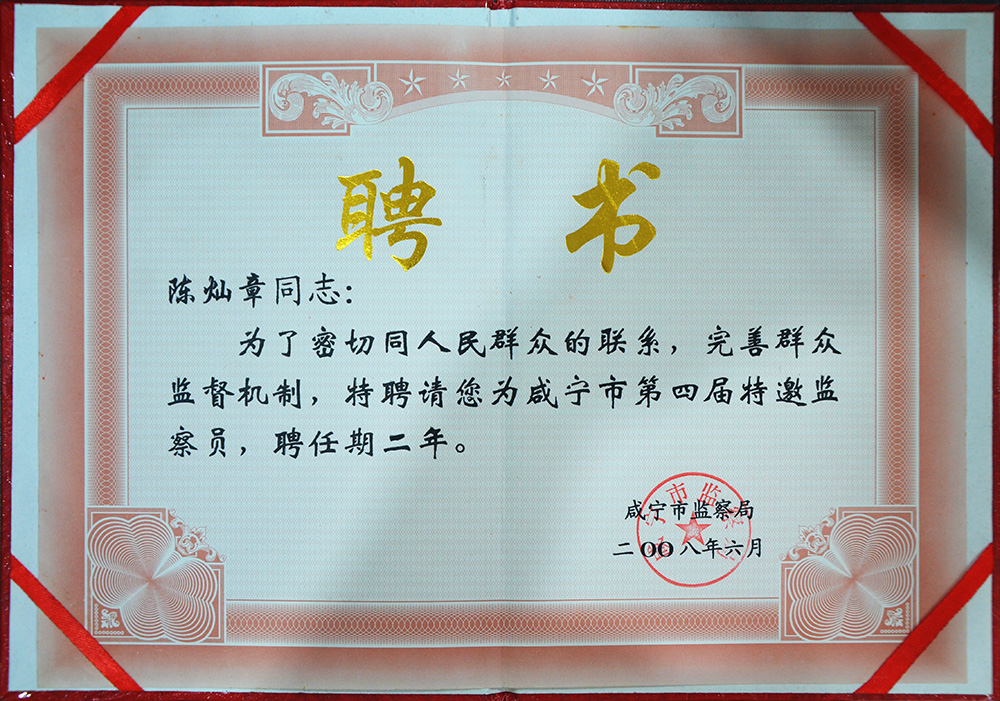 聘书
陈灿章同志:
为了密切同人民群众的联系，完善群众
监督机制，特聘请您为咸宁市第四届特邀监
察员，聘任期二年。
咸宁市监察局
二〇〇八年六月